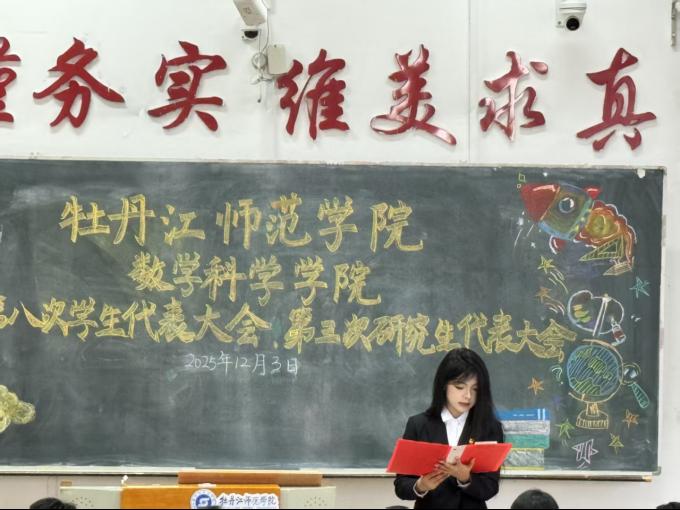 谨务实 维美求真
牡丹江师范学院
数学科学学院
第八次学生代表大会、第三次研究生代表大会
2025年12月3日
牡丹江师范学院